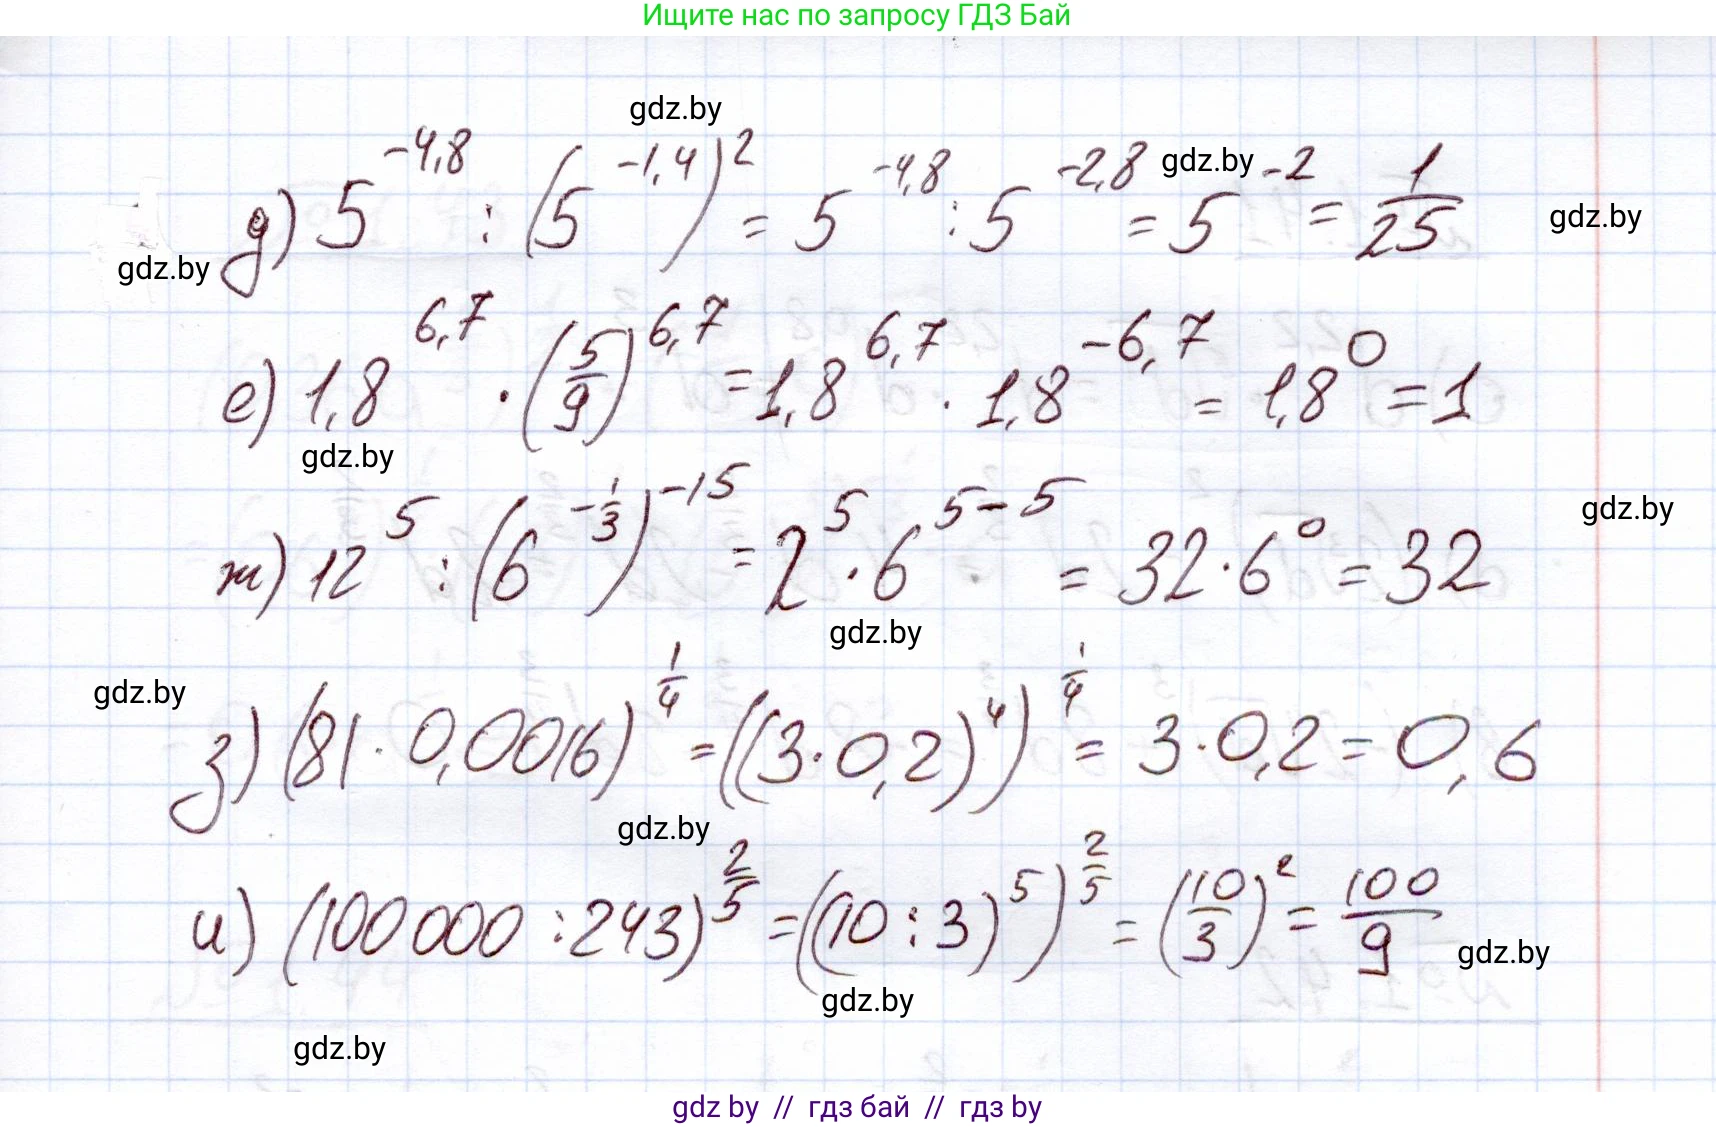 Ищите нас по запросу ГДЗ Бай
gdz.by
д) 5^{-4,8} : (5^{-1,4})^2 = 5^{-4,8} : 5^{-2,8} = 5^{-2} = 1/25
gdz.by
gdz.by
gdz.by
е) 1,8^{6,7} · (5/9)^{6,7} = 1,8^{6,7} · 1,8^{-6,7} = 1,8^0 = 1
gdz.by
gdz.by
ж) 12^5 : (6^{-1/3})^{-15} = 2^5 · 6^{5-5} = 32 · 6^0 = 32
gdz.by
gdz.by
з) (81 · 0,0016)^{1/4} = ((3 · 0,2)^4)^{1/4} = 3 · 0,2 = 0,6
gdz.by
и) (100 000 : 243)^{2/5} = ((10 : 3)^5)^{2/5} = (10/3)^2 = 100/9
gdz.by
gdz.by
gdz.by
gdz by // гдз бай // гдз by